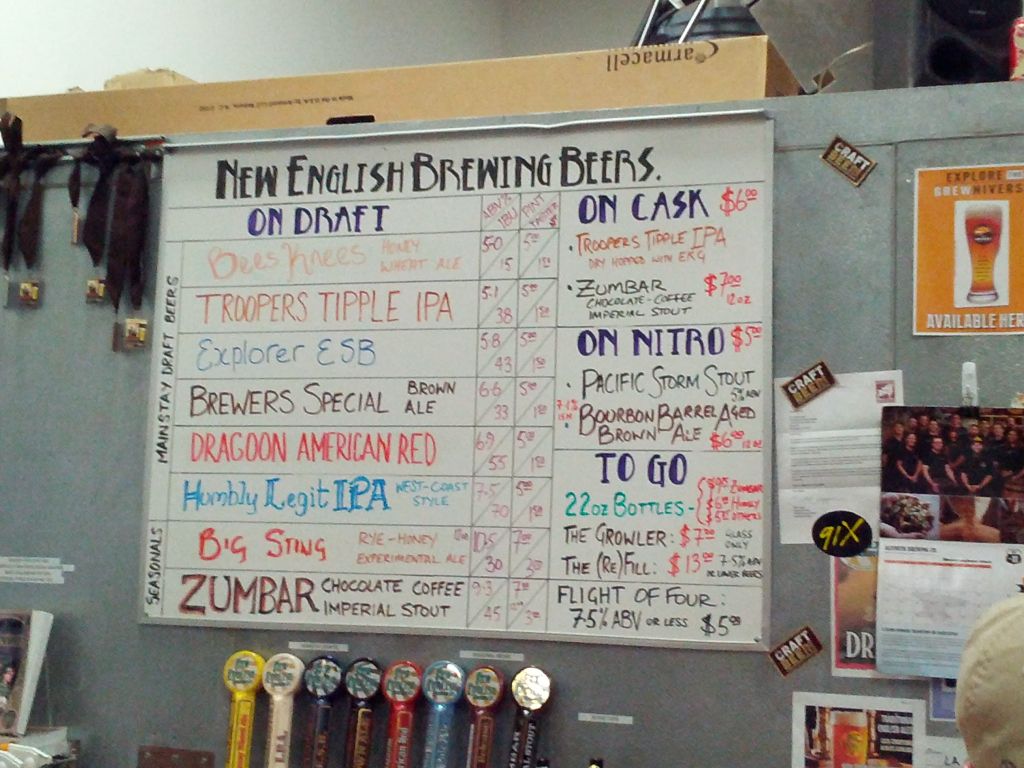 Carmacell
NEW ENGLISH BREWING BEERS.
ON DRAFT
ABV%
IBU
PINT
MAINSTAY DRAFT BEERS
Bees Knees HONEY WHEAT ALE 5.0 15 5.00
TROOPERS TIPPLE IPA 5.1 38 5.00
Explorer ESB 5.8 43 5.00
BREWERS SPECIAL BROWN ALE 6.6 33 5.00
DRAGOON AMERICAN RED 6.9 55 5.00
Humbly Legit IPA WEST-COAST STYLE 7.5 70 5.00
SEASONALS
BIG STING RYE-HONEY EXPERIMENTAL ALE 10.5 30 7.00
ZUMBAR CHOCOLATE COFFEE IMPERIAL STOUT 9.3 45 7.00
ON CASK $6.00
• TROOPERS TIPPLE IPA
DRY HOPPED WITH EKG
• ZUMBAR $7.00
CHOCOLATE-COFFEE 12oz
IMPERIAL STOUT
ON NITRO $5.00
• PACIFIC STORM STOUT
5% ABV
• BOURBON BARREL AGED
BROWN ALE $6.00 12oz
TO GO
22oz BOTTLES-
ZUMBAR
HONEY
OTHERS
THE GROWLER: $7.00 GLASS ONLY
THE (RE)FILL: $13.00 7.5% OR LOWER BEERS
FLIGHT OF FOUR:
7.5% ABV OR LESS $5.00
CRAFT BEER
EXPLORE THE
BREWNIVERS
AVAILABLE HER
CRAFT BEER
91X
DR
CRAFT BEER
LA